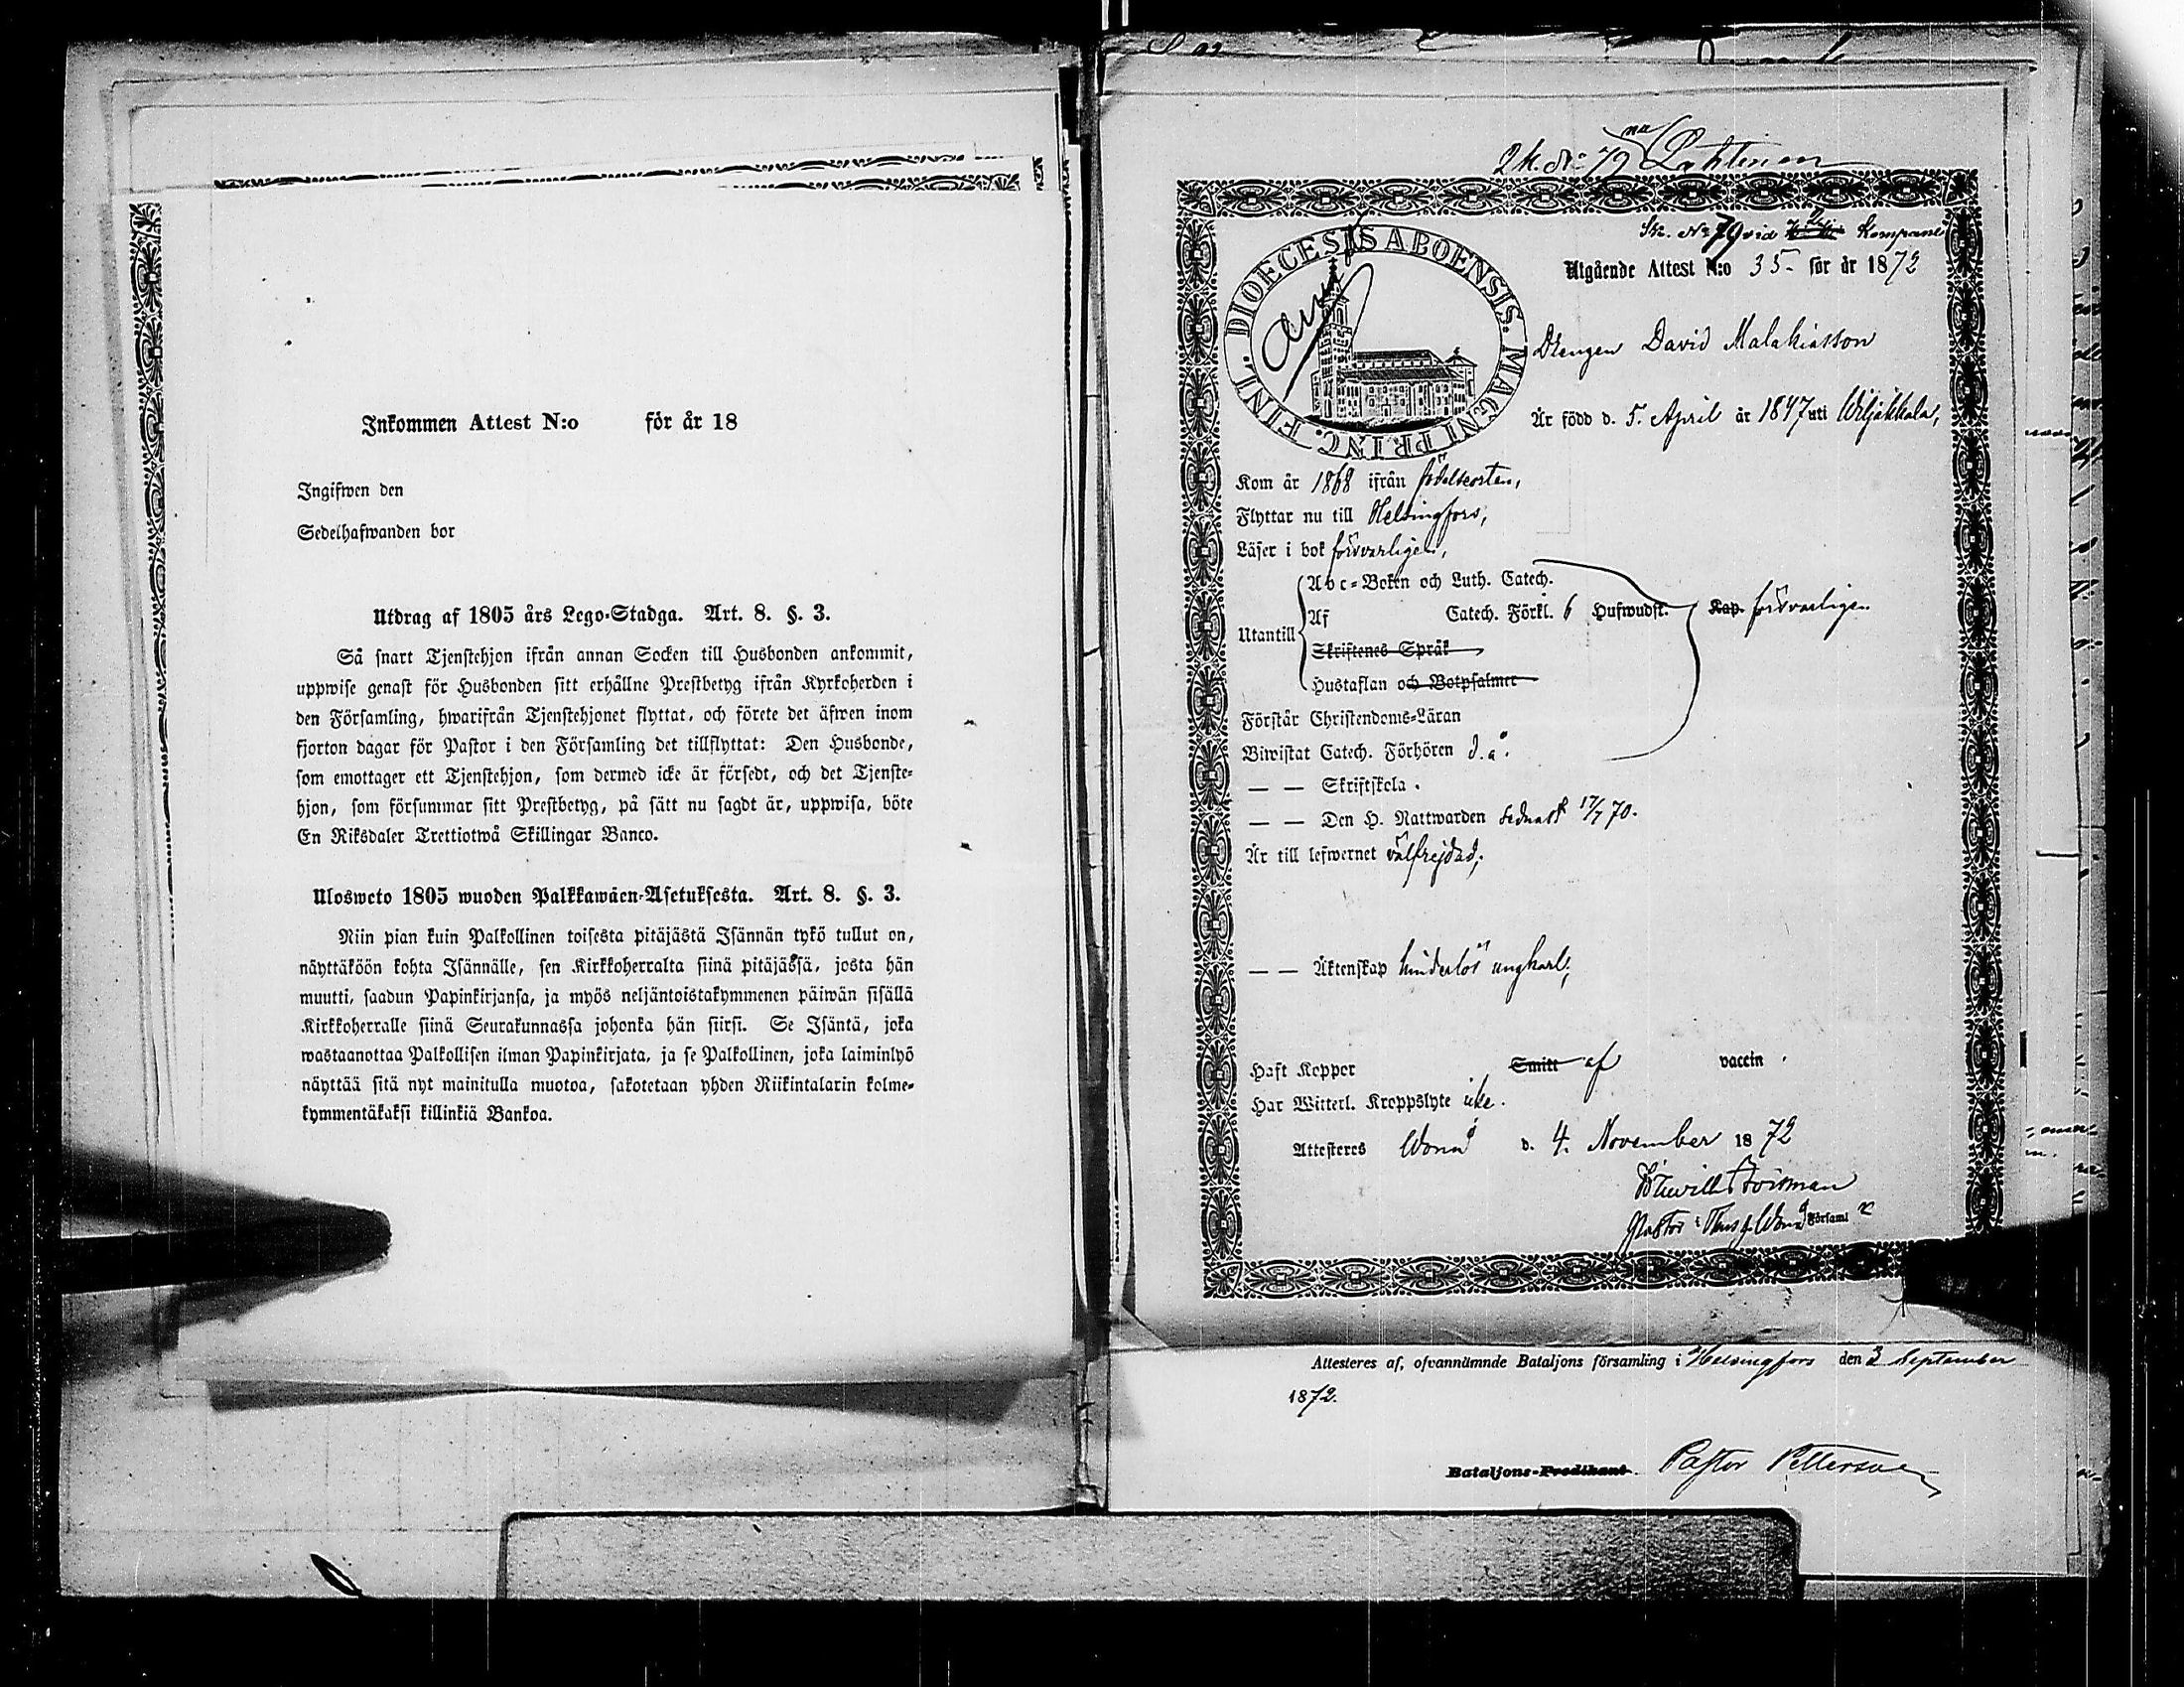 Inkommen Attest N:o för år 18
Ingifwen den
Sedelhafwanden bor
Utdrag af 1805 års Lego-Stadga. Art. 8. §. 3.
Så snart Tjenstehjon ifrån annan Socken till Husbonden ankommit,
uppwise genast för Husbonden sitt erhållne Prestbetyg ifrån Kyrkoherden i
den Församling, hwarifrån Tjenstehjonet flyttat, och förete det äfwen inom
fjorton dagar för Pastor i den Församling det tillflyttat: Den Husbonde,
som emottager ett Tjenstehjon, som dermed icke är försedt, och det Tjenste-
hjon, som försummar sitt Prestbetyg, på sätt nu sagdt är, uppwisa, böte
En Riksdaler Trettiotwå Skillingar Banco.
Ulosweto 1805 wuoden Palkkawäen-Asetuksesta. Art. 8. §. 3.
Niin pian kuin Palkollinen toisesta pitäjästä Isännän tykö tullut on,
näyttäköön kohta Isännälle, sen Kirkkoherralta siinä pitäjässä, josta hän
muutti, saadun Papinkirjansa, ja myös neljäntoistakymmenen päiwän sisällä
Kirkkoherralle siinä Seurakunnassa johonka hän siirsi. Se Isäntä, joka
wastaanottaa Palkollisen ilman Papinkirjata, ja se Palkollinen, joka laiminlyö
näyttää sitä nyt mainitulla muotoa, sakotetaan yhden Riikintalarin kolme-
kymmentäkaksi killinkiä Bankoa.
2 K. No 79 Lahtinen
Sk. No 79 vid Kompani
Utgående Attest N:o 35 för år 1872
DIOECESIS ABOENSIS. MAGNI PRINC. FINL.
Drengen David Malakiasson
Är född d. 5. April år 1847 uti Wiljakkala,
Kom år 1868 ifrån födelseorten,
Flyttar nu till Helsingfors,
Läser i bok försvarligen,
Abc-Boken och Luth. Catech.
Utantill Af Catech. Förkl. 6 Hufwudst. Kap. försvarligen
Skriftenes Språk
Hustaflan och Botpsalmer
Förstår Christendoms-Läran
Biwistat Catech. Förhören d. å.
— — Skriftskola.
— — Den H. Nattwarden sednast 17/7 70.
Är till lefwernet välfrejdad,
— — Äktenskap hinderlös ungkarl,
Haft Koppor Smitt af vaccin
Har Witterl. Kroppslyte icke.
Attesteres Wånå d. 4. November 1872
Pastor i Församl
Attesteres af, ofvannämnde Bataljons församling i Helsingfors den 3 September
1872.
Bataljons-Predikant. Pastor Pettersson